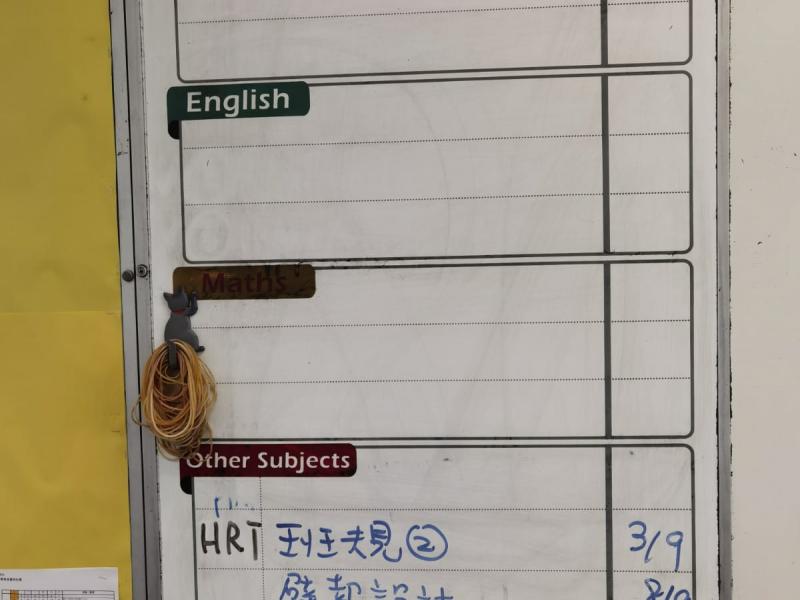 English
Maths
Other Subjects
HRT 班規② 3/9
壁報設計 8/9